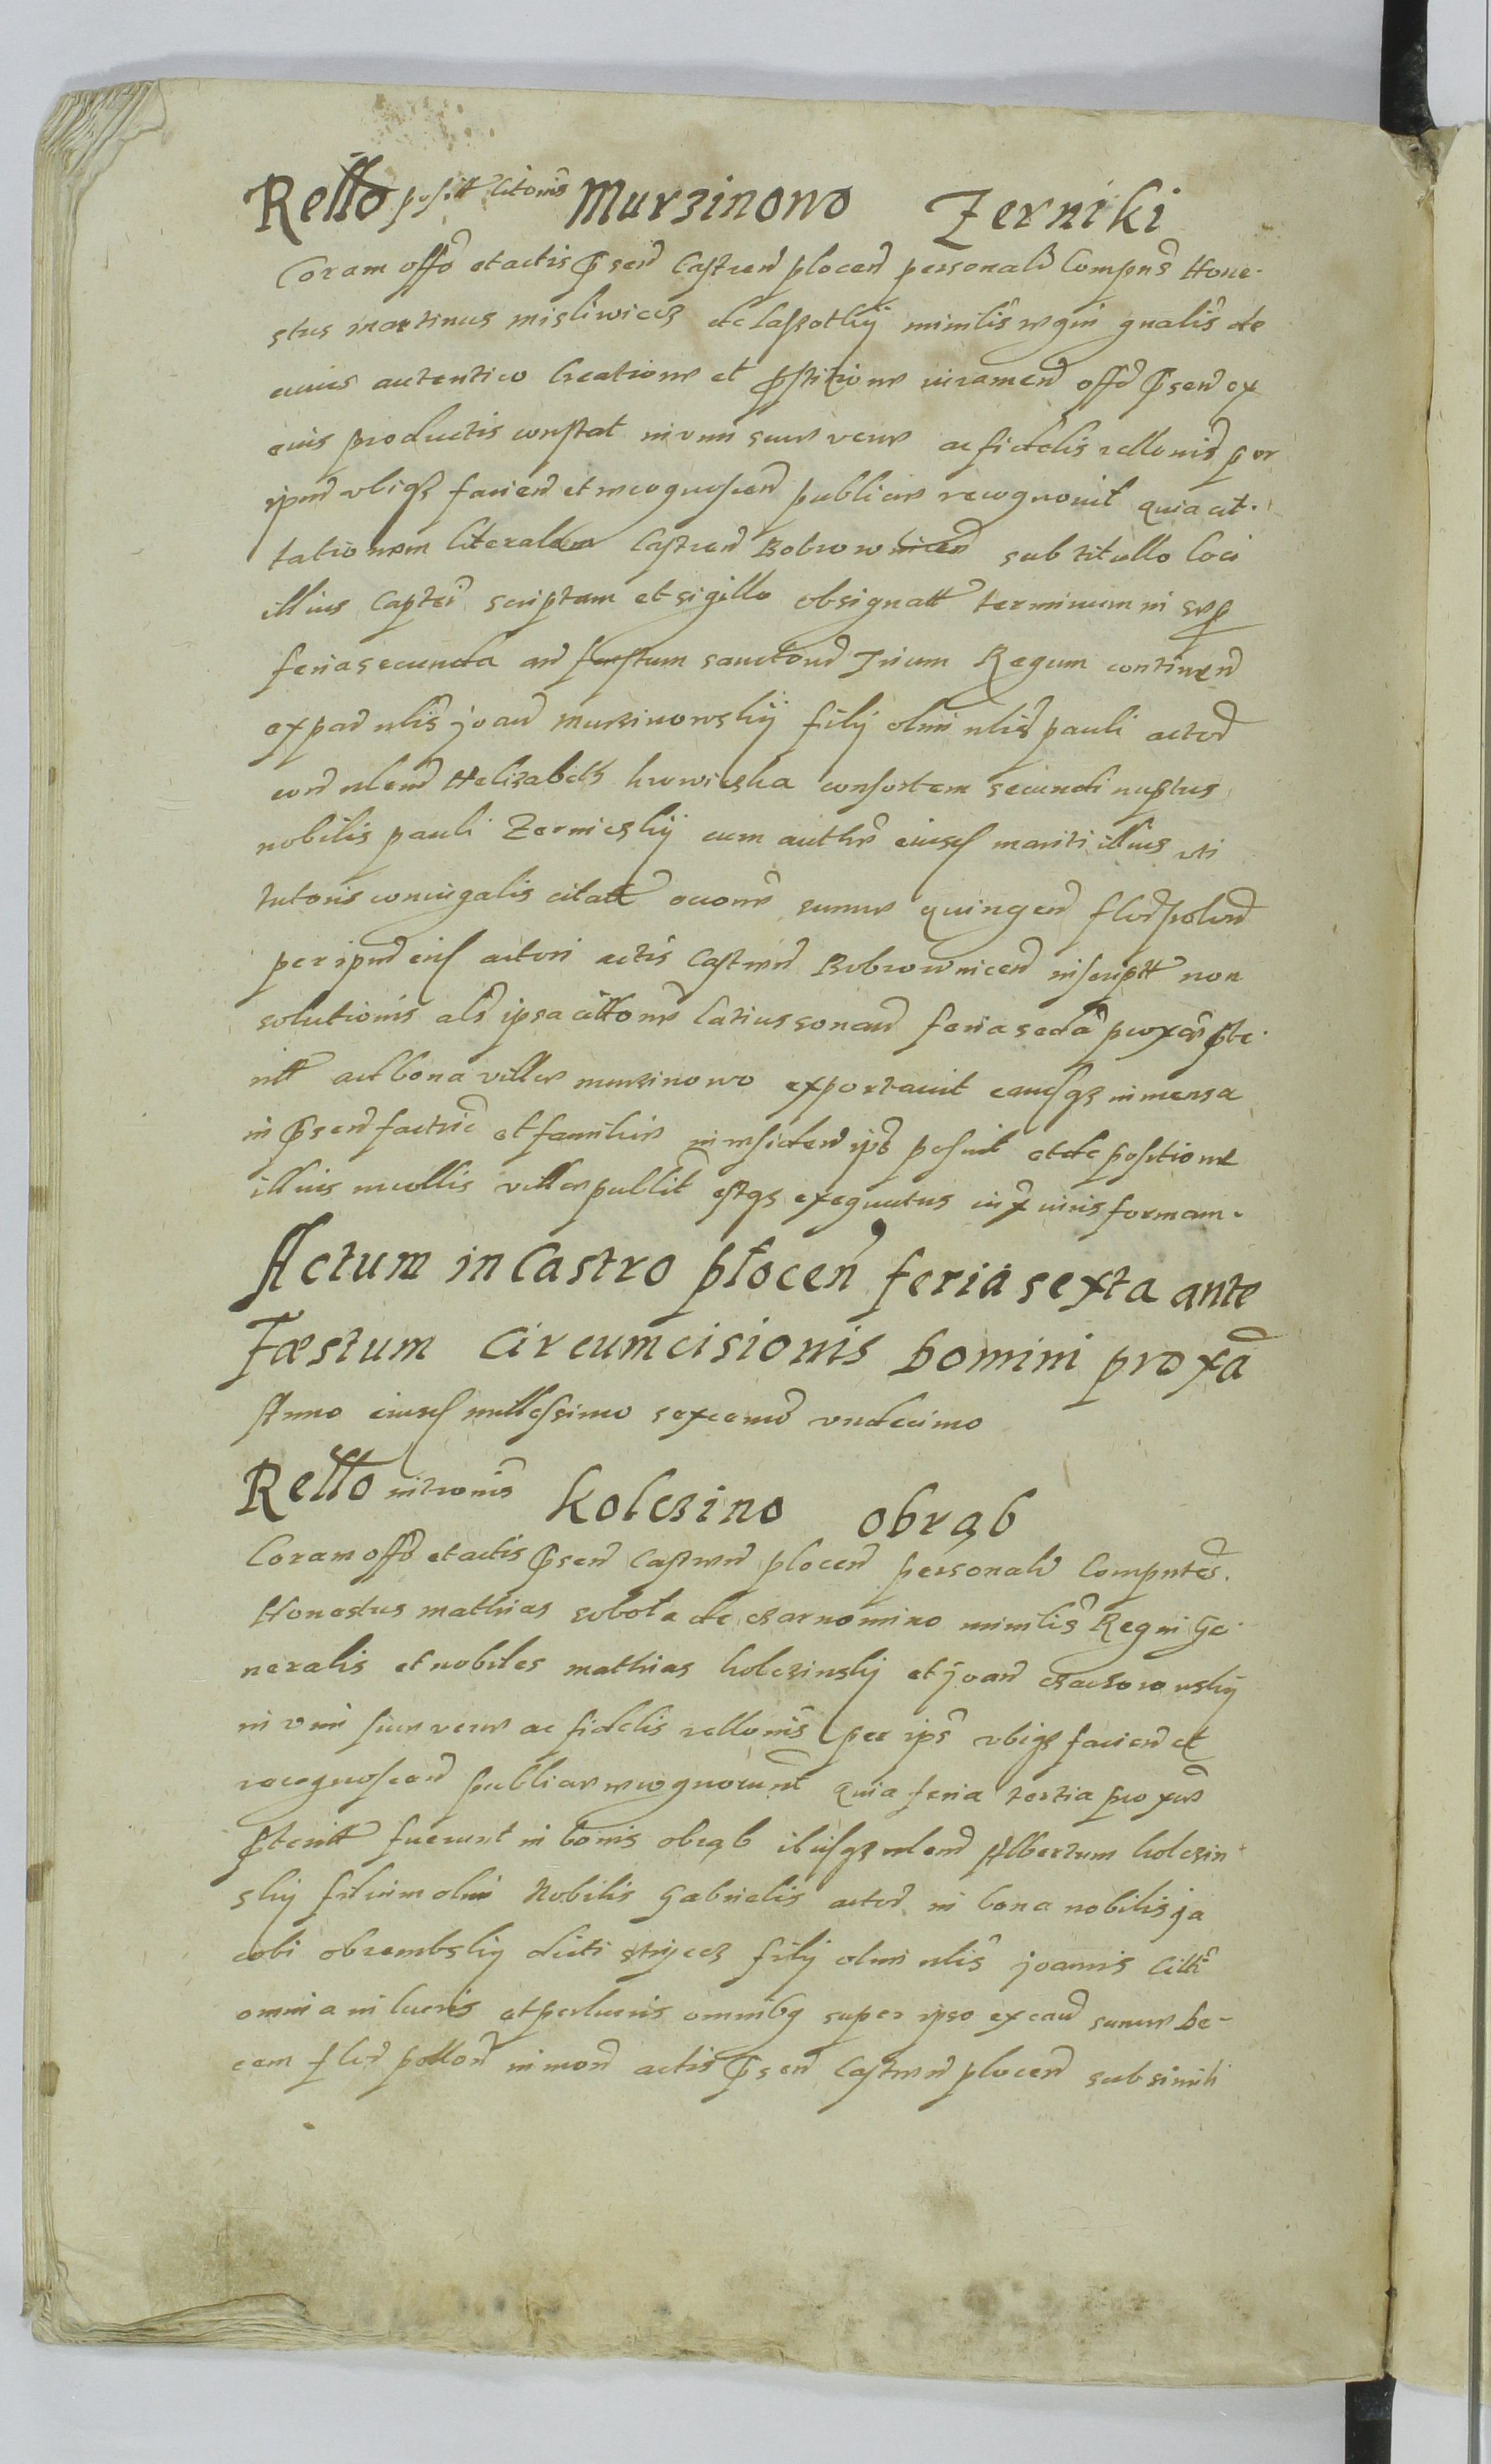 Rello posit citonis Mursinowo Zerniki
Coram offo et actis pnsen Castren plocen personalr Compns Hone-
stus martinus misliwiecz de Laszothÿ ministlis regni gnalis de
cuius autentico Creationis et pstitione iuramen offo pnsen ex
eius productis constat in vim suae verae ac fidelis rellonis per
ipm vbiqz facien et recognoscen publicae recognouit quia cit-
tationem literalem Castren Bobrownicen sub titullo loci
illius Captei scriptam et sigillo obsignatt terminum in se
feria secunda an festum sanctoru Trium Regum continen
ex par nlis joan mursinowskÿ filÿ olim nlis pauli actor
con nlem Helisabeth krowicska consortem secundi nuptus
nobilis pauli Zernieskÿ cum authe eiusd mariti illius vti
tutoris coniugalis citatt oconis summe quingen flor polon
per ipm eid actori actis Castren Bobrownicen inscriptt non
solutionis als ipsa cittone latius sonan feria seda proxa pte-
ritt ad bona villae mursinowo exportauit eamqz in mensa
in pnsen factric et familiae in residen ips posuit et de positione
illius incollis villae publit estqz exequutus iux iuris formam.
Actum in Castro płocen feria sexta ante
Fæstum Circumcisionis Domini proxa
Anno eiusd millessimo sexcenmo vndecimo
Rello intronis kolczino obrąb
Coram offo et actis pnsen Castren plocen personalr Compntes.
Honestus mathias sobota de czarnomino ministlis Regni Ge-
neralis et nobiles mathias kolczinskÿ et joan
in vim suae verae ac fidelis rellonis per ips vbiqz facien et
recognoscen publicae recognorunt quia feria tertia proxae
pteritt fuerunt in bonis obrąb ibiqz nlem Albertum kolczin-
skÿ filium olim Nobilis Gabrielis actor in bona nobilis ja
cobi obrembskÿ dicti strÿecz filÿ olim nlis joannis citti
omnia in lucris et perlucris omnibq super ipso ex cau summe de-
cem flor pollon in mon actis pnsen Castren plocen sub simili